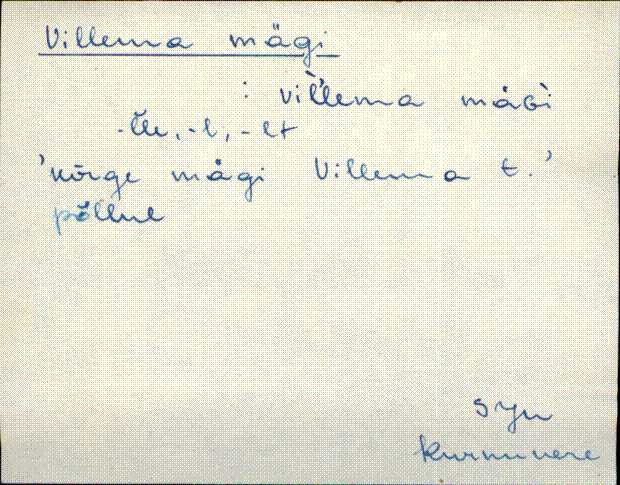 Villema mägi
: vil̀lema mäGì
-l̆le, -l, -lt
'kõrge mägi Villema t.'
põllul
SJn
Kurnuvere